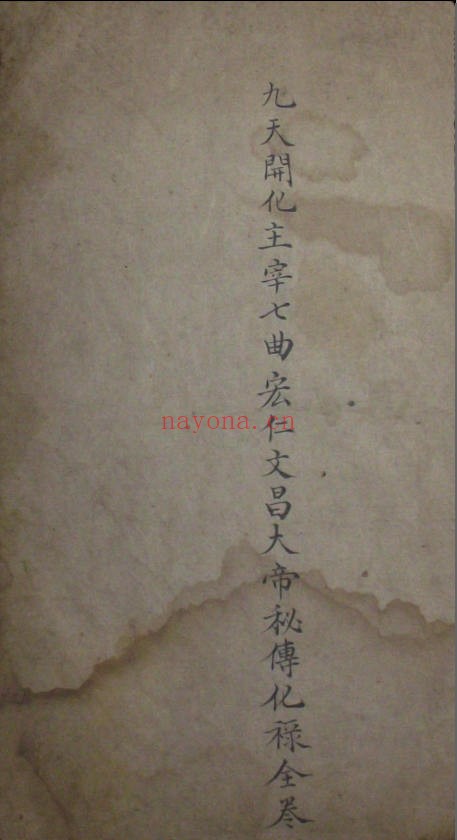 九天開化主宰七曲宏仁文昌大帝秘傳化祿全卷
nayona.cn